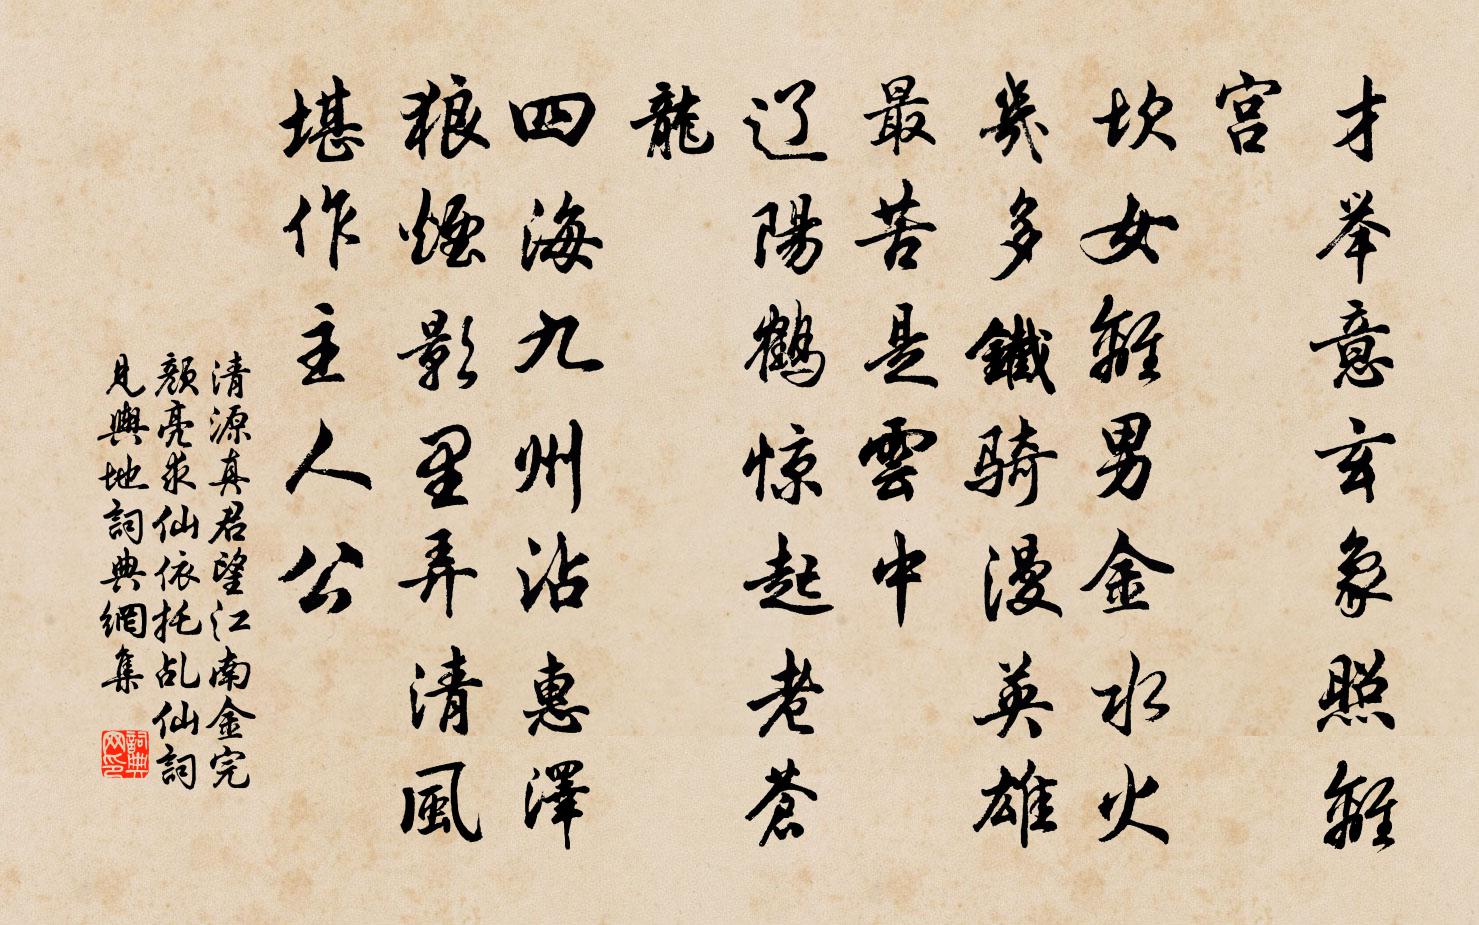 才举意玄象照離
宫
坎女離男金水火
幾多鐵骑漫英雄
最苦是雲中
辽陽鶴惊起老蒼
龍
四海九州沾惠澤
狼煙影里弄清風
堪作主人公
清源真君望江南金完
颜亮求仙依托乩仙詞
見輿地詞典網集
詞典网印